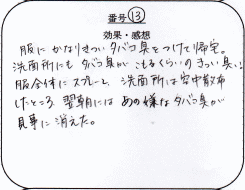 番号⑬
効果・感想
服にかなりきついタバコ臭をつけて帰宅。
洗面所にもタバコ臭がこもるくらいのきつい臭い。
服全体にスプレーし、洗面所は空中散布
したところ、翌朝にはあの嫌なタバコ臭が
見事に消えた。